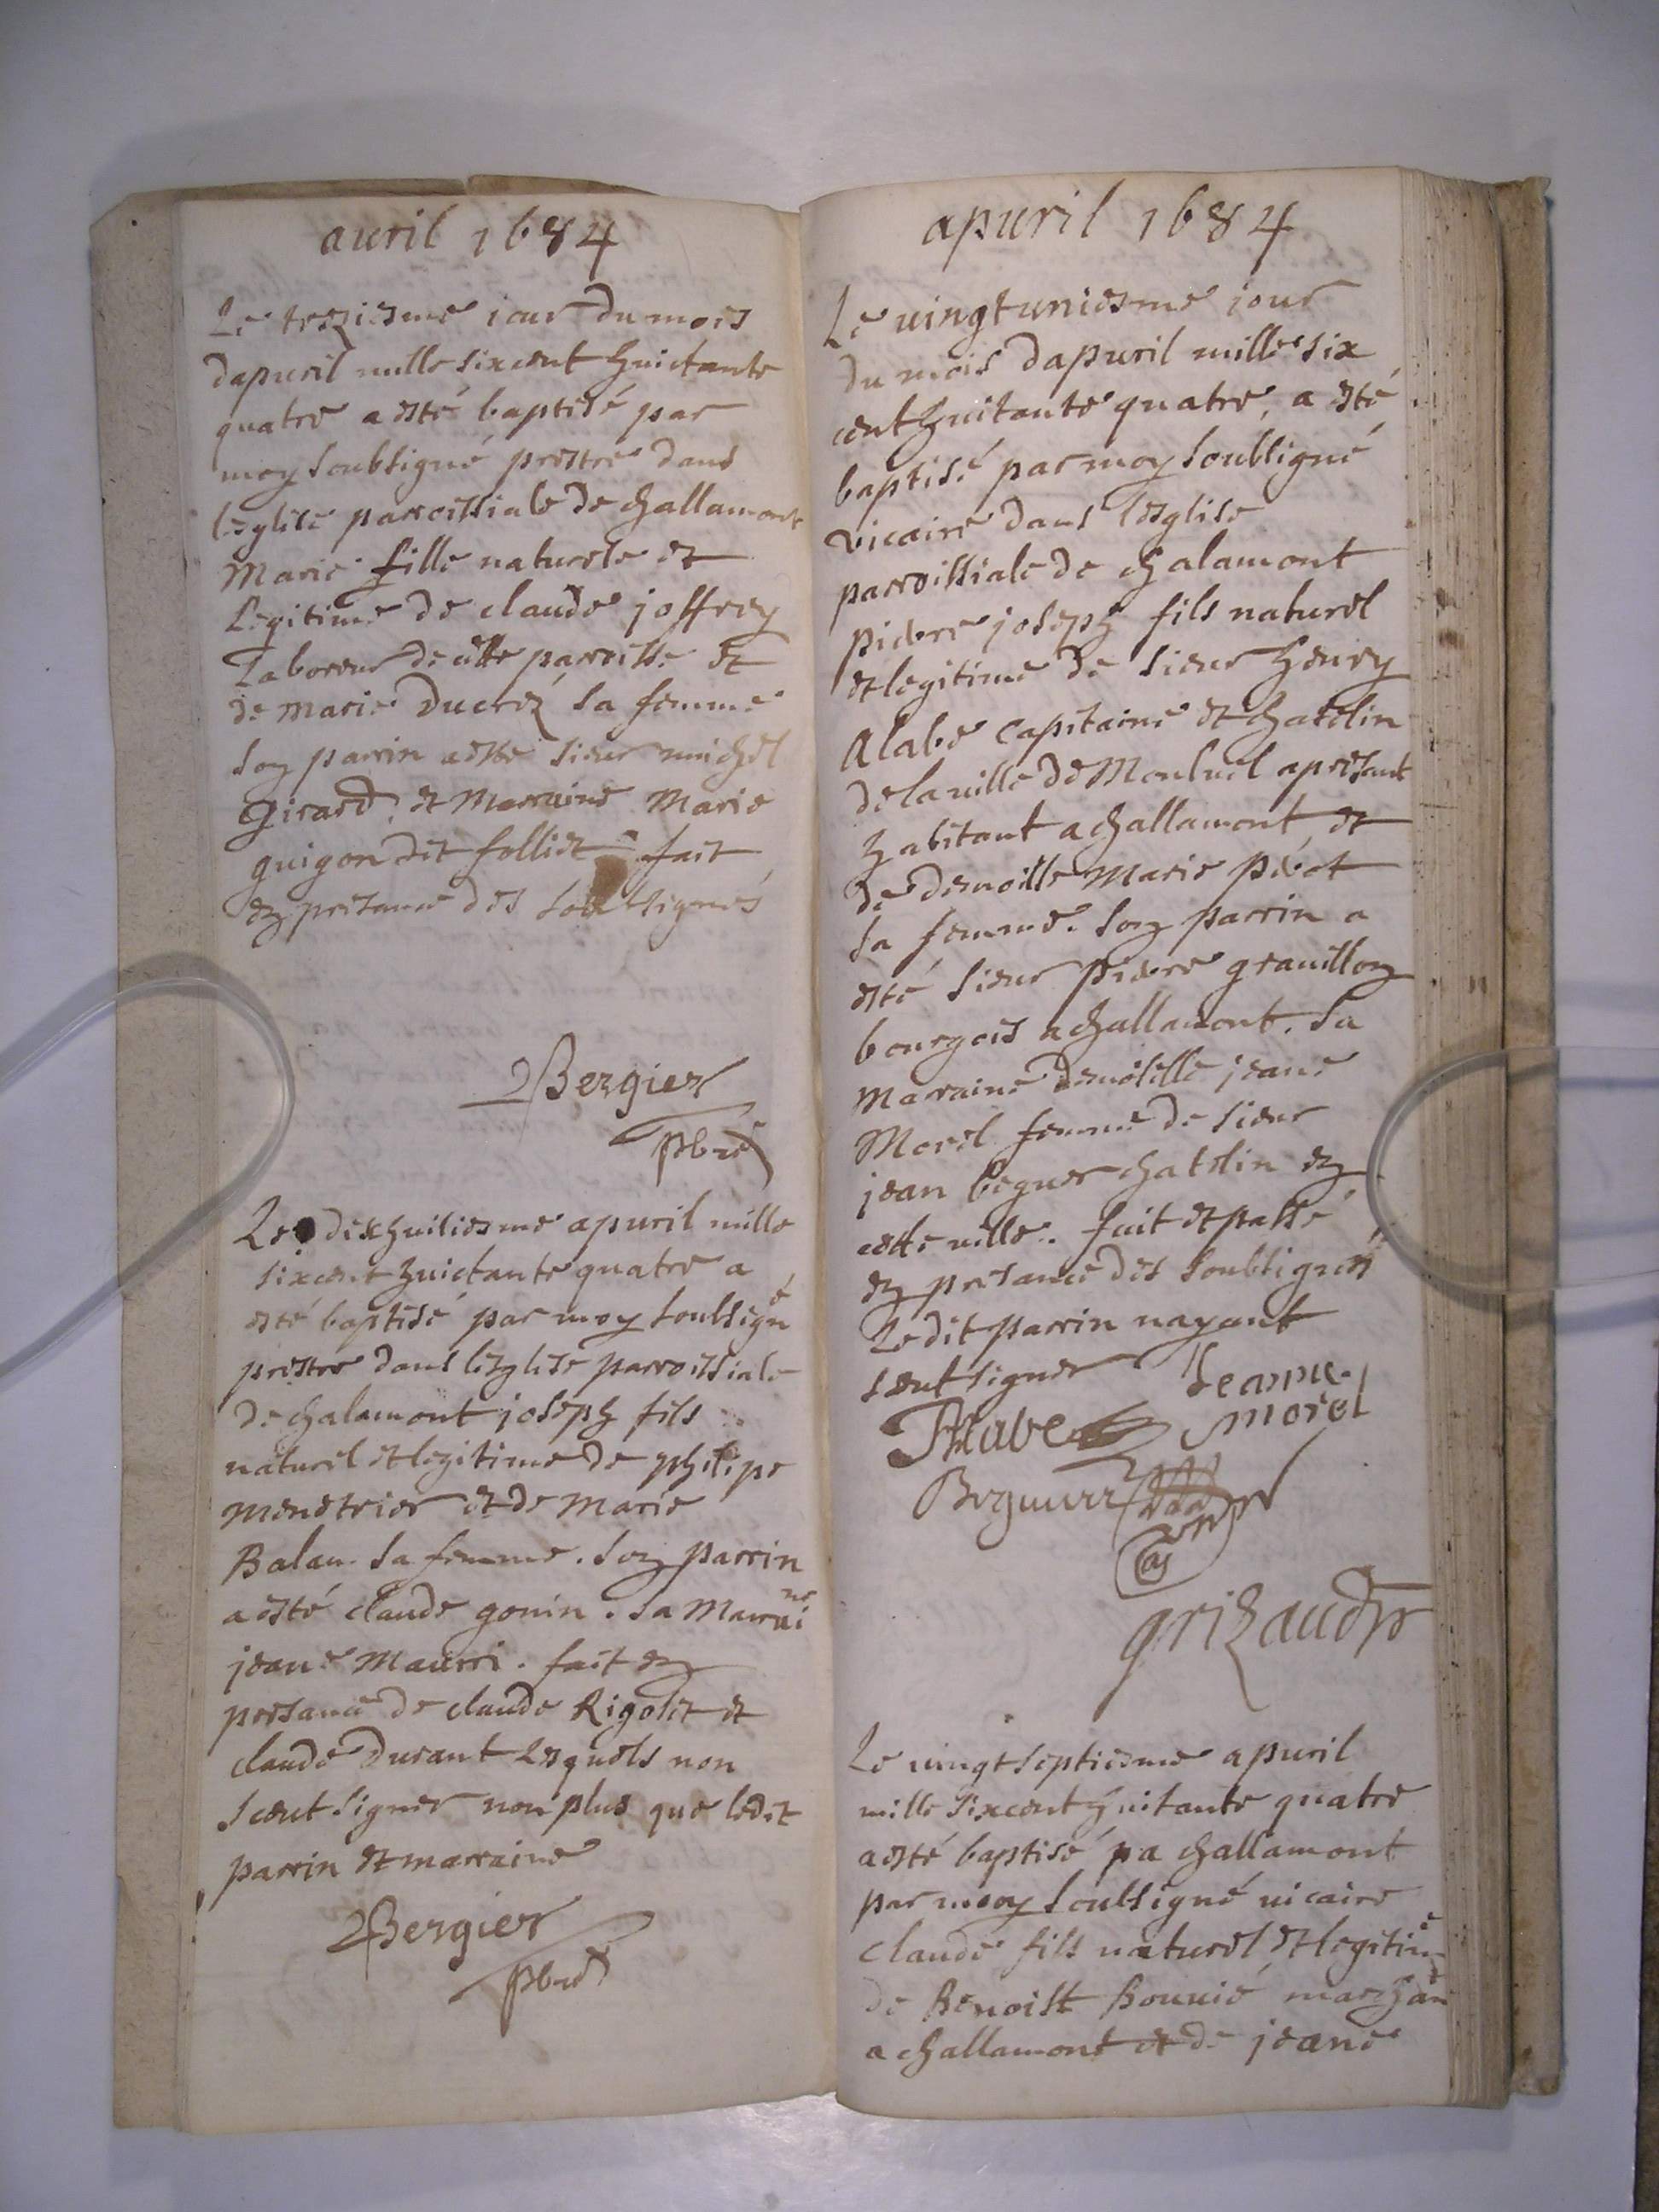 auril 1684
Le treziesme iour du mois
dapuril mille sixcent huictante
quatre a esté baptisé par
moy soubsigné prestre dans
leglise parroissiale de challamont
Marie fille naturele et
Legitime de claude joffrey
Laboreur de cette parroisse et
de Marie Ducrez sa femme
son parrin a esté sieur michel
Girard, et Marraine Marie
guigon dit folliet fait
en presance des soubsignés
Bergier
pbre
Le dixhuitiesme apuril mille
sixcent huictante quatre a
esté baptisé par moy soubsigné
prestre dans lesglise parroissiale
de chalamont joseph fils
naturel et legitime de philipe
menetrier et de Marie
Balan sa femme. son parrin
a esté claude gonin. sa Marraine
jeane Maurri. fait en
presance de claude Rigolet et
claude Durant Lesquels non
sceut signer non plus que ledit
parrin et marraine
Bergier
pbre
apuril 1684
Le uingtuniesme jour
du mois dapuril mille six
cent huitante quatre, a esté
baptisé par moy soubsigné
vicaire dans lesglise
parroissiale de chalamont
pierre joseph fils naturel
et legitime de sieur henry
Alabe capitaine et chatelin
de la uille de Monluel apresant
habitant a challamont et
de demoille Marie pivot
sa femme. son parrin a
esté sieur pierre grauillon
bourgois a challamont. sa
marraine demoiselle jeane
Morel femme de sieur
jean beguer chatelin en
cette uille. fait et passé
en presance des soubsignés
Ledit parrin nayant
sceut signer Jeanne
Alabe morel
Beguerr
grizaud
Le uingt septiesme apuril
mille sixcent huitante quatre
a esté baptisé pa challamont
par moy soubsigné uicaire
claude fils naturel et legitime
de Benoist Bouuié marchan
a challamont et de jeane